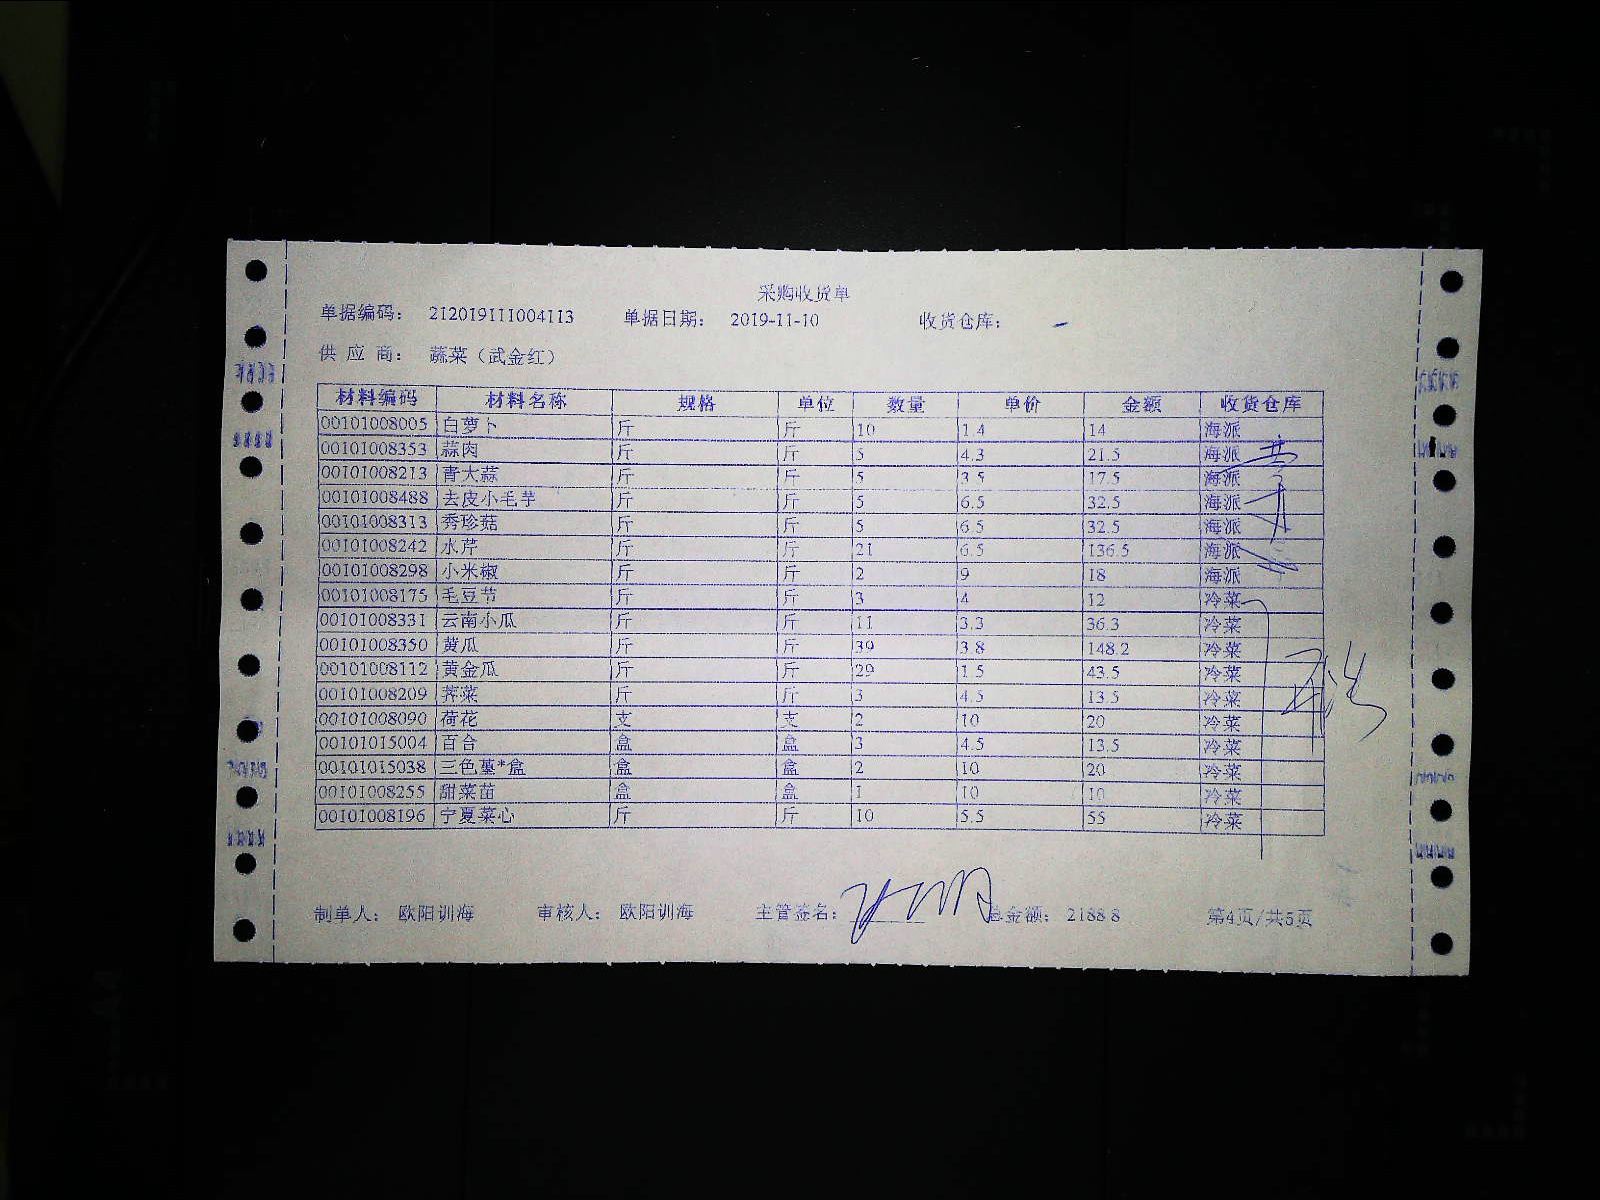 采购收货单
单据编码: 212019111004113 单据日期: 2019-11-10 收货仓库:
供 应 商: 蔬菜（武金红）
材料编码 材料名称 规格 单位 数量 单价 金额 收货仓库
00101008005 白萝卜 斤 斤 10 1.4 14 海派
00101008353 蒜肉 斤 斤 5 4.3 21.5 海派
00101008213 青大蒜 斤 斤 5 3.5 17.5 海派
00101008488 去皮小毛芋 斤 斤 5 6.5 32.5 海派
00101008313 秀珍菇 斤 斤 5 6.5 32.5 海派
00101008242 水芹 斤 斤 21 6.5 136.5 海派
00101008298 小米椒 斤 斤 2 9 18 海派
00101008175 毛豆节 斤 斤 3 4 12 冷菜
00101008331 云南小瓜 斤 斤 11 3.3 36.3 冷菜
00101008350 黄瓜 斤 斤 39 3.8 148.2 冷菜
00101008112 黄金瓜 斤 斤 29 1.5 43.5 冷菜
00101008209 荠菜 斤 斤 3 4.5 13.5 冷菜
00101008090 荷花 支 支 2 10 20 冷菜
00101015004 百合 盒 盒 3 4.5 13.5 冷菜
00101015038 三色堇*盒 盒 盒 2 10 20 冷菜
00101008255 甜菜苗 盒 盒 1 10 10 冷菜
00101008196 宁夏菜心 斤 斤 10 5.5 55 冷菜
制单人: 欧阳训海 审核人: 欧阳训海 主管签名: 总金额: 2188.8 第4页/共5页